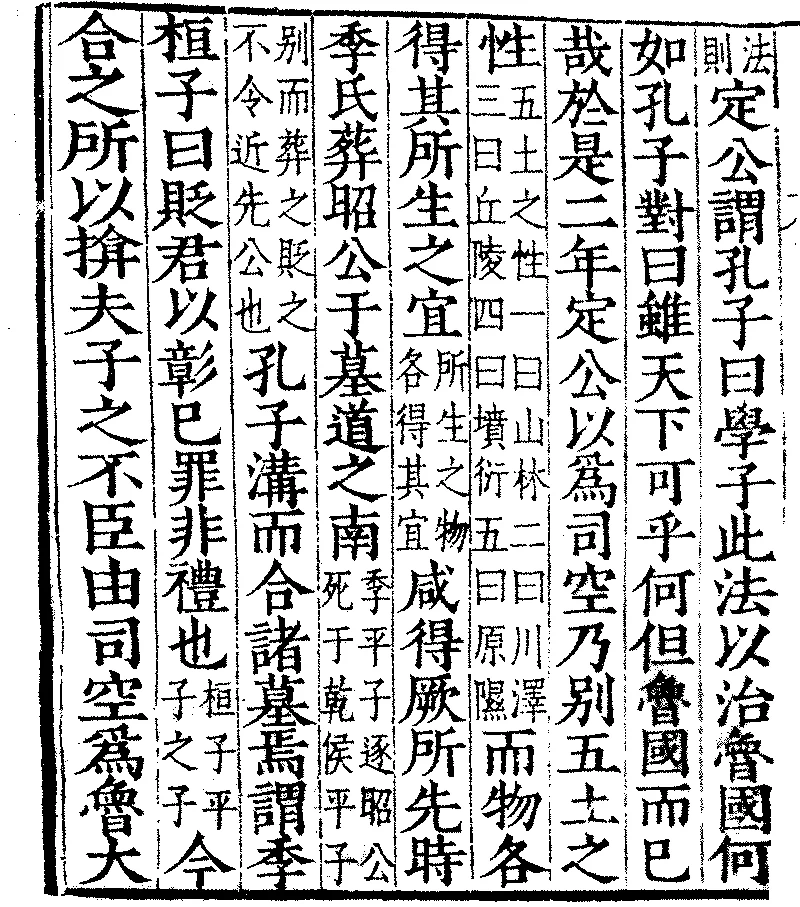 法則定公謂孔子曰學子此法以治魯國何
如孔子對曰雖天下可乎何但魯國而已
哉於是二年定公以爲司空乃别五土之
性五土之性一曰山林二曰川澤三曰丘陵四曰墳衍五曰原隰而物各
得其所生之宜所生之物各得其宜咸得厥所先時
季氏葬昭公于墓道之南季平子逐昭公死于乾侯平子
别而葬之貶之不令近先公也孔子溝而合諸墓焉謂季
桓子曰貶君以彰已罪非禮也桓子平子之子今
合之所以揜夫子之不臣由司空爲魯大